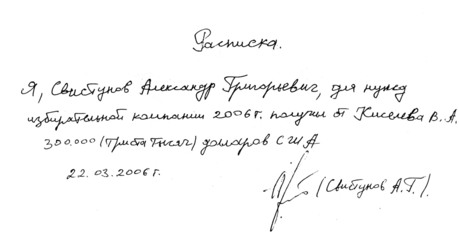 Расписка.
Я, Свистунов Александр Григорьевич, для нужд
избирательной компании 2006г. получил от Киселева В. А.
300.000 (Триста тысяч) долларов США
22.03.2006г.
(Свистунов А.Г.).